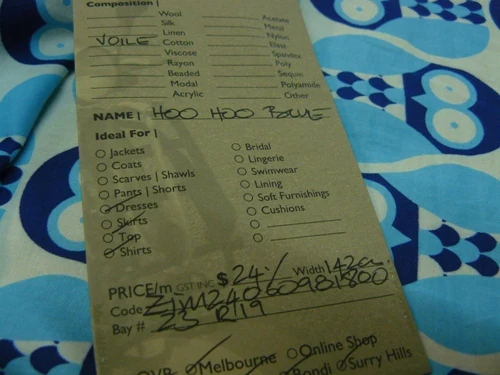 Composition |
Wool Acetate
Silk Metal
Linen Nylon
VOILE Cotton Elast
Viscose Spandex
Rayon Poly
Beaded Sequin
Modal Polyamide
Acrylic Other
NAME | HOO HOO BLUE
Ideal For |
Jackets Bridal
Coats Lingerie
Scarves | Shawls Swimwear
Pants | Shorts Lining
Dresses Soft Furnishings
Skirts Cushions
Top
Shirts
PRICE/m GST INC $24./ Width 142cm
Code
Bay # 23 R/19
QVB Melbourne Online Shop
Bondi Surry Hills